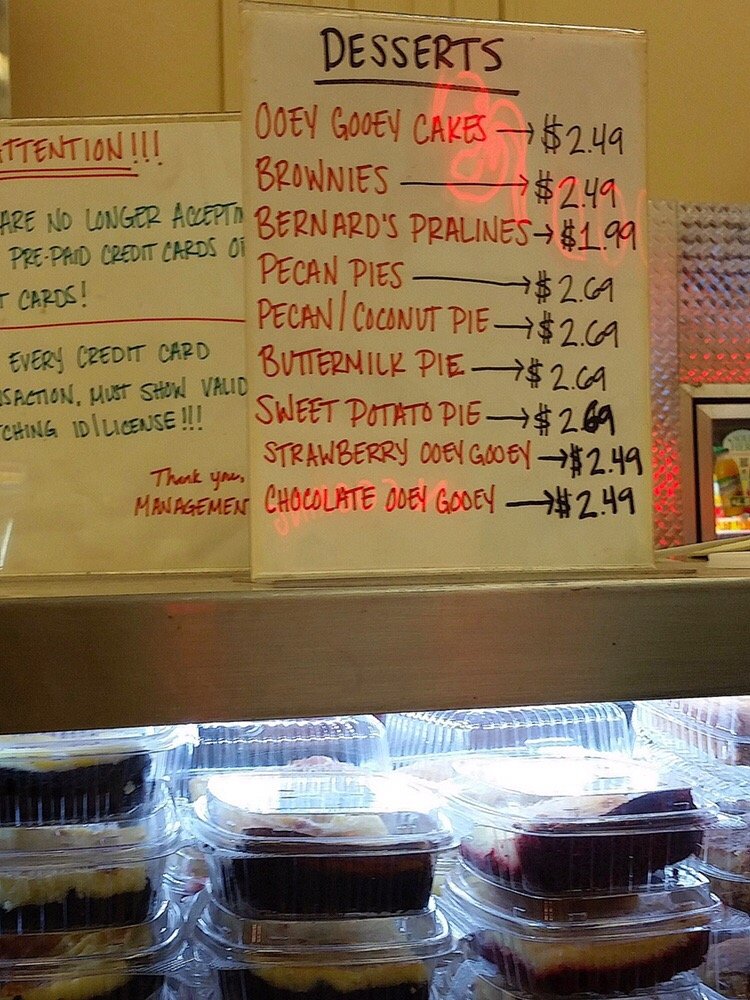 DESSERTS
OOEY GOOEY CAKES → $2.49
BROWNIES → $2.49
BERNARD'S PRALINES → $1.99
PECAN PIES → $2.69
PECAN/COCONUT PIE → $2.69
BUTTERMILK PIE → $2.69
SWEET POTATO PIE → $2.69
STRAWBERRY OOEY GOOEY → $2.49
CHOCOLATE OOEY GOOEY → $2.49
ATTENTION!!!
ARE NO LONGER ACCEPTIN
PRE-PAID CREDIT CARDS O
T CARDS!
EVERY CREDIT CARD
SACTION, MUST SHOW VALID
CHING ID/LICENSE!!!
Thank you,
MANAGEMEN